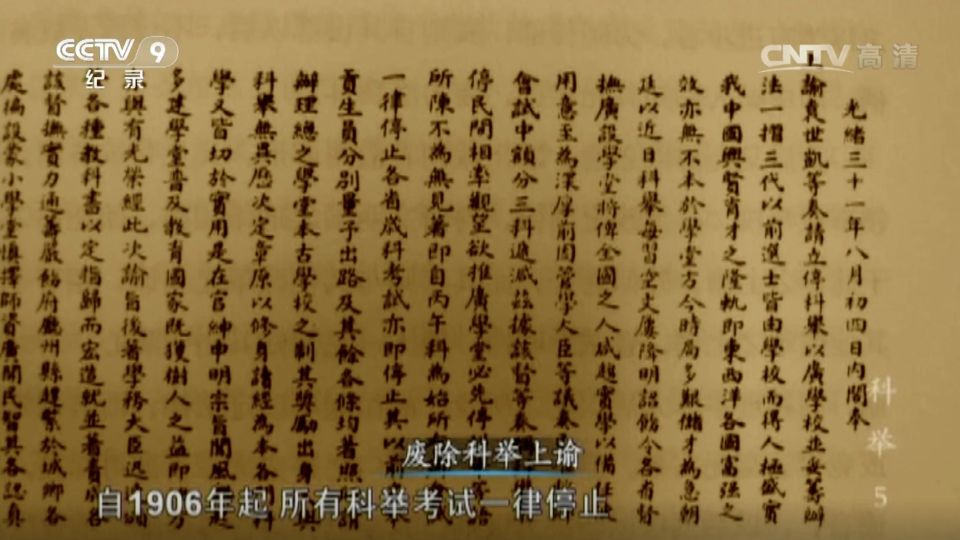 CCTV 9
纪录
CNTV高清
光緒三十一年八月初四日內閣奉
上諭袁世凱等奏請立停科舉以廣學校並妥籌辦
法一摺三代以前選士皆由學校而得人極盛實
我中國興賢育才之隆軌即東西洋各國富强之
效亦無不本於學堂方今時局多艱儲才為急朝
廷以近日科舉每習空文屢降明詔飭令各省督
撫廣設學堂將俾全國之人咸趨實學以備
用意至為深厚前因管學大臣等議奏
會試中額分三科遞減茲據該督等奏
停民間相率觀望欲推廣學堂必先停等語
所陳不為無見著即自丙午科為始所
一律停止各省歲科考試亦即停止其以前
貢生員分別量予出路及其餘各條均著照
辦理總之學堂本古學校之制其獎勵出身與
科舉無異歷次定章原以修身讀經為本各科
學又皆切於實用是在官紳申明宗旨聞風
多建學堂普及教育國家既獲樹人之益即
與有光榮經此次諭旨後著學務大臣迅
各種教科書以定指歸而宏造就並著責
該督撫實力通籌嚴飭府廳州縣趕緊於城鄉各
處徧設蒙小學堂慎擇師資廣開民智其各認真
科举
5
废除科举上谕
自1906年起 所有科举考试一律停止